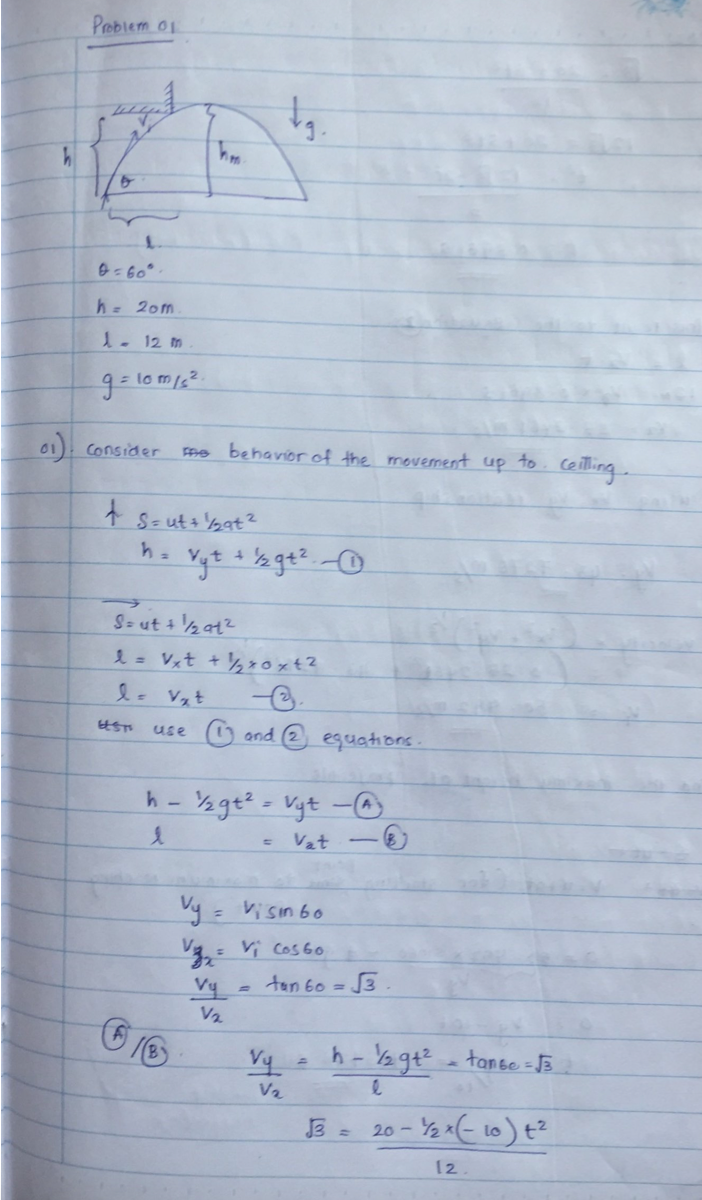 Problem 01
g.
h
hm
θ
l.
θ = 60°.
h = 20m
l = 12 m
g = 10 m/s².
01). consider behavior of the movement up to ceilling.
↑ S = ut + ½at²
h = Vyt + ½gt² — ①
→
S = ut + ½at²
l = Vxt + ½ × 0 × t²
l = Vxt — ②.
use ① and ② equations.
h - ½gt² = Vyt — Ⓐ
l = Vxt — Ⓑ
Vy = Vi sin 60
Vx = Vi cos 60
Vy/Vx = tan 60 = √3.
Ⓐ/Ⓑ. Vy/Vx = (h - ½gt²)/l = tan 60 = √3
√3 = (20 - ½ × (-10) t²)/12.